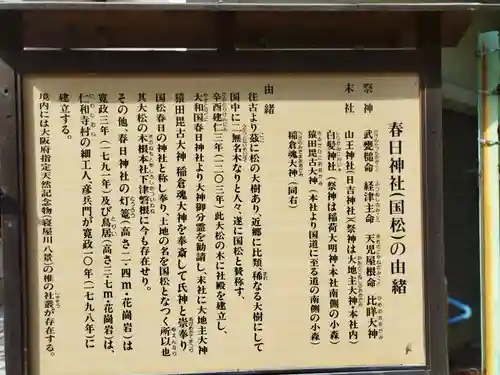 春日神社(国松)の由緒
祭神 武甕槌命 経津主命 天児屋根命 比咩大神
末社 山王神社(日吉神社)(祭神は大地主大神・本社内)
白髭神社(祭神は稲荷大明神・本社南側の小森)
猿田毘古大神(本社より国道に至る道の南側の小森)
稲倉魂大神(同右)
由緒
往古より茲に松の大樹あり、近郷に比類稀なる大樹にして
国中に二無き名木なりと人々遂に国松と賛称す、
辛酉建仁三年(一二〇三年)此大松の木に社殿を建立し、
大和国春日神社より大神御分霊を勧請し、末社に大地主大神
猿田毘古大神 稲倉魂大神を奉斎して氏神と崇奉り
国松春日の神社と称し奉り、土地の名を国松となつく所以也
其大松の木根本社下津磐根に今も存在せり。
その他春日神社の灯篭(高さ二・四m・花崗岩)は、
寛政三年(一七九一年)及び鳥居(高さ三・七m・花崗岩)は、
仁和寺村の細工人、彦兵門が寛政一〇年(一七九八年)に
建立する。
境内には大阪府指定天然記念物(寝屋川八景)の椎の社叢が存在する。